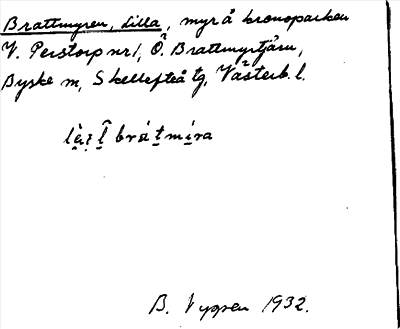 Brattmyren, Lilla, myr å kronoparken
V. Perstorp nr 1, Ö. Brattmyrtjärn,
Byske sn, Skellefteå tg, Västerb. l.
B. Nygren 1932.